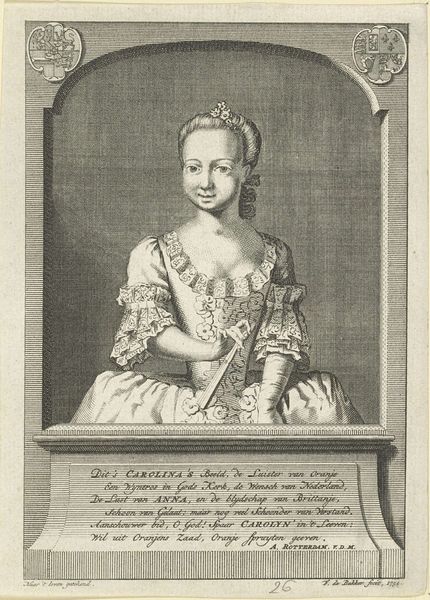 Dit's CAROLINA'S Beeld, de Luister van Oranje
Een Wynsros in Gods Kerk, de Wensch van Nederland,
De Lust van ANNA, en de blydschap van Brittanje,
Schoon van Gelaat; maar nog veel Schoonder van Verstand.
Aanschouwer bid, O God! Spaar CAROLYN in 't Leeven:
Wil uit Oranjens Zaad, Oranje Spruyten geeven.
A. ROTTERDAM. V. D. M.
Naar 't leven getekend.
26
F. de Bakker fecit, 1754.